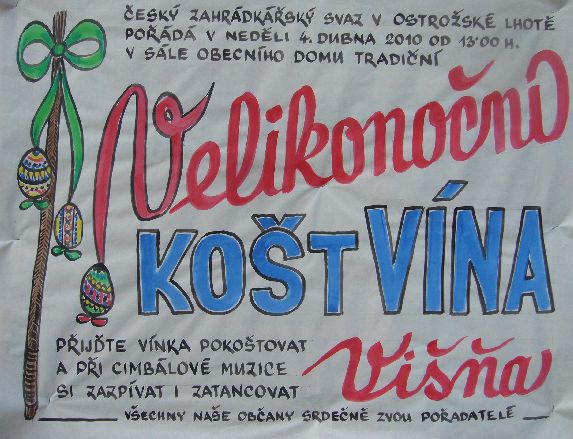 ČESKÝ ZAHRÁDKÁŘSKÝ SVAZ V OSTROŽSKÉ LHOTĚ
POŘÁDÁ V NEDĚLI 4. DUBNA 2010 OD 13'00 H.
V SÁLE OBECNÍHO DOMU TRADIČNÍ
Velikonoční
KOŠT VÍNA
PŘIJĎTE VÍNKA POKOŠTOVAT
A PŘI CIMBÁLOVÉ MUZICE
SI ZAZPÍVAT I ZATANCOVAT
Višňa
VŠECHNY NAŠE OBČANY SRDEČNĚ ZVOU POŘADATELÉ